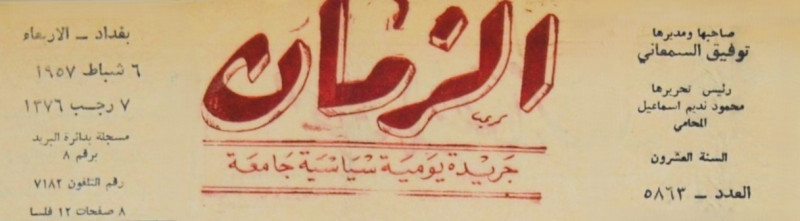 صاحبها ومديرها
توفيق السمعاني
رئيس تحريرها
محمود نديم اسماعيل
المحامي
السنة العشرون
العدد – ٥٨٦٣
الزمان
جريدة يومية سياسية جامعة
بغداد – الاربعاء
٦ شباط ١٩٥٧
٧ رجب ١٣٧٦
مسجلة بدائرة البريد
برقم ٨
رقم التلفون ٧١٨٢
٨ صفحات ١٢ فلسا